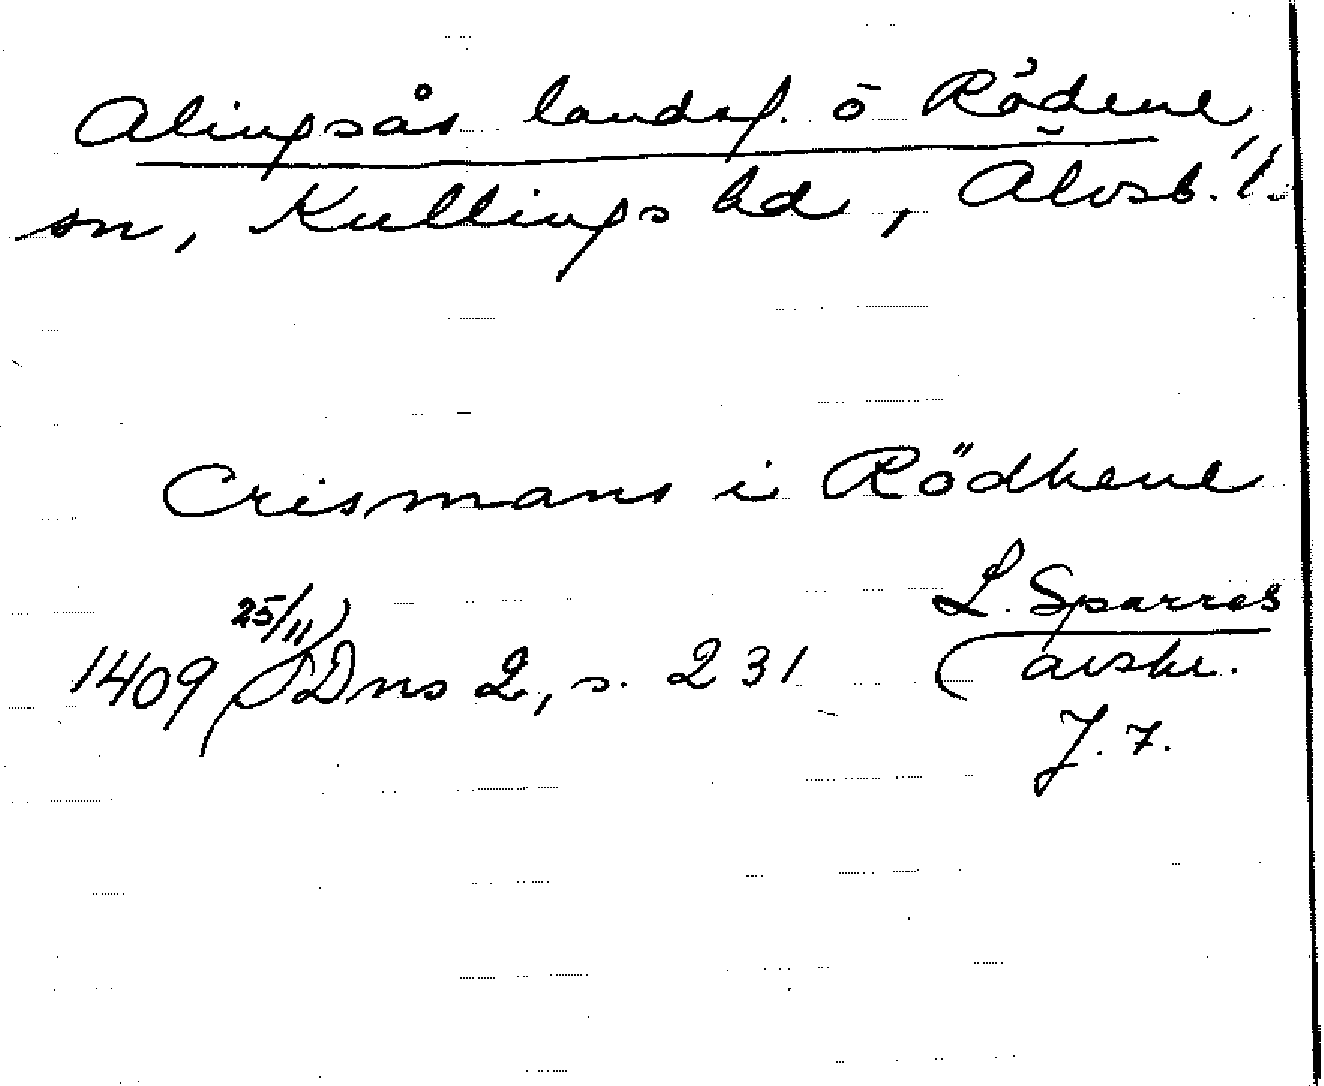 Alingsås landsf. o Rödene
sn, Kullings hd, Älvsb. l.
Crismans i Rödhene
1409 25/11 SDns 2, s. 231
L. Sparres
avskr.
J. 7.